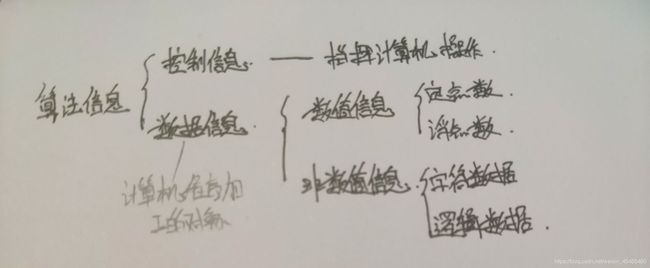 算法信息
控制信息 — 指挥计算机操作.
数据信息.
数值信息
定点数.
浮点数.
非数值信息.
字符数据
逻辑数据.
计算机
工的对象